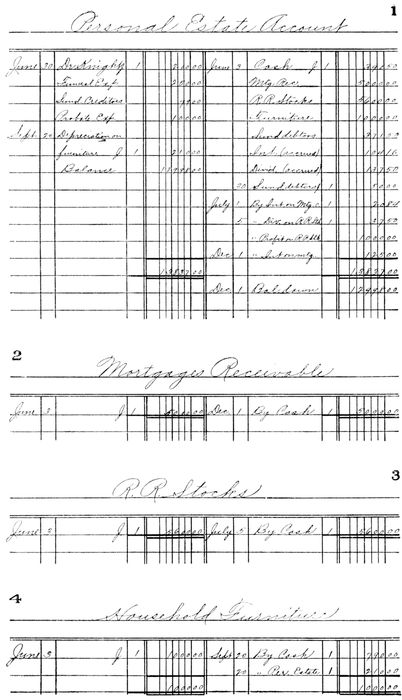 1
Personal Estate Account
June 30 Dr. Knight J 1 200 00 June 3 Cash J 1
Funeral Exp. Mtg. Rec. 5000 00
Sund. Creditors R. R. Stocks 5600 00
Probate Exp. 100 00 Furniture 1000 00
Sept. 20 Depreciation on Sund debtors
furniture J 1 210 00 Int. (accrued) 104 16
Balance Divid. (accrued) 137 50
20 Sund debtors 1 50 00
July 1 By Int. on Mtg. 1 20 84
5 " Div. on R R Stk 1 37 50
" Profit on R R Stk 100 00
Dec 1 " Int. on mtg. 125 00
13827 00 13827 00
Dec 1 Bal. down
2
Mortgages Receivable
June 3 J 1 5000 00 Dec 1 By Cash 1 5000 00
3
R. R. Stocks
June 3 J 1 5600 00 July 5 By Cash 1 5600 00
4
Household Furniture
June 3 J 1 1000 00 Sept 20 By Cash 1 790 00
20 " Per. Estate 1 210 00
1000 00 1000 00